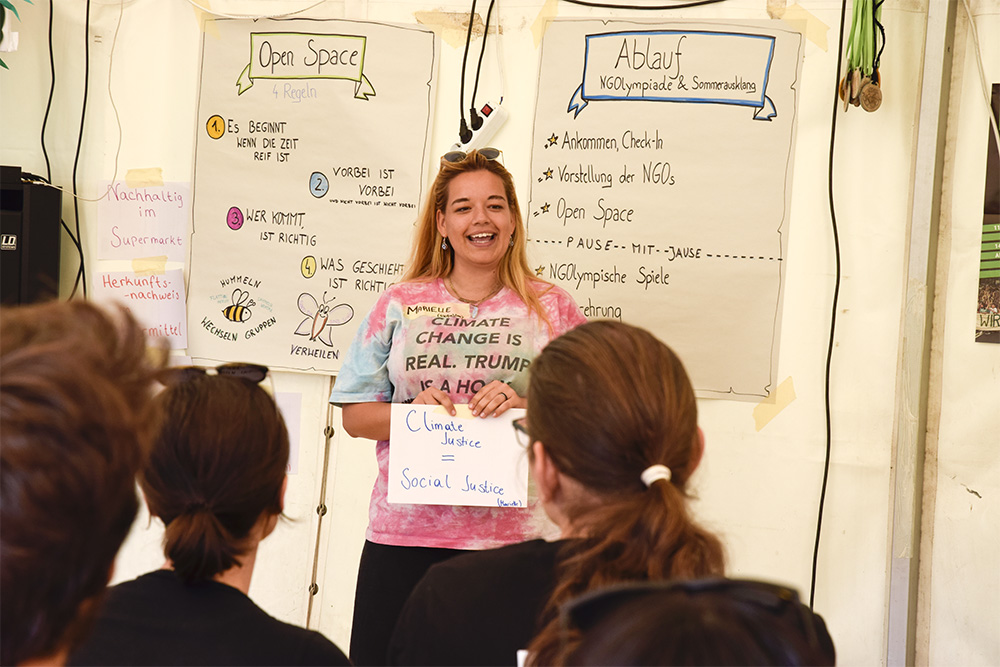 Open Space
4 Regeln
1. Es BEGINNT
WENN DIE ZEIT
REIF IST
2. VORBEI IST
VORBEI
UND NICHT VORBEI IST NICHT VORBEI
3. WER KOMMT,
IST RICHTIG
4. WAS GESCHIEHT
IST RICHTIG
HUMMELN
WECHSELN GRUPPEN
VERWEILEN
Ablauf
NGOlympiade & Sommerausklang
Ankommen, Check-In
Vorstellung der NGOs
Open Space
PAUSE MIT JAUSE
NGOlympische Spiele
Nachhaltig
im
Supermarkt
Herkunfts-
nachweis
MARIELLE
CLIMATE
CHANGE IS
REAL. TRUMP
IS A
Climate
Justice
=
Social Justice
(Marielle)
LD